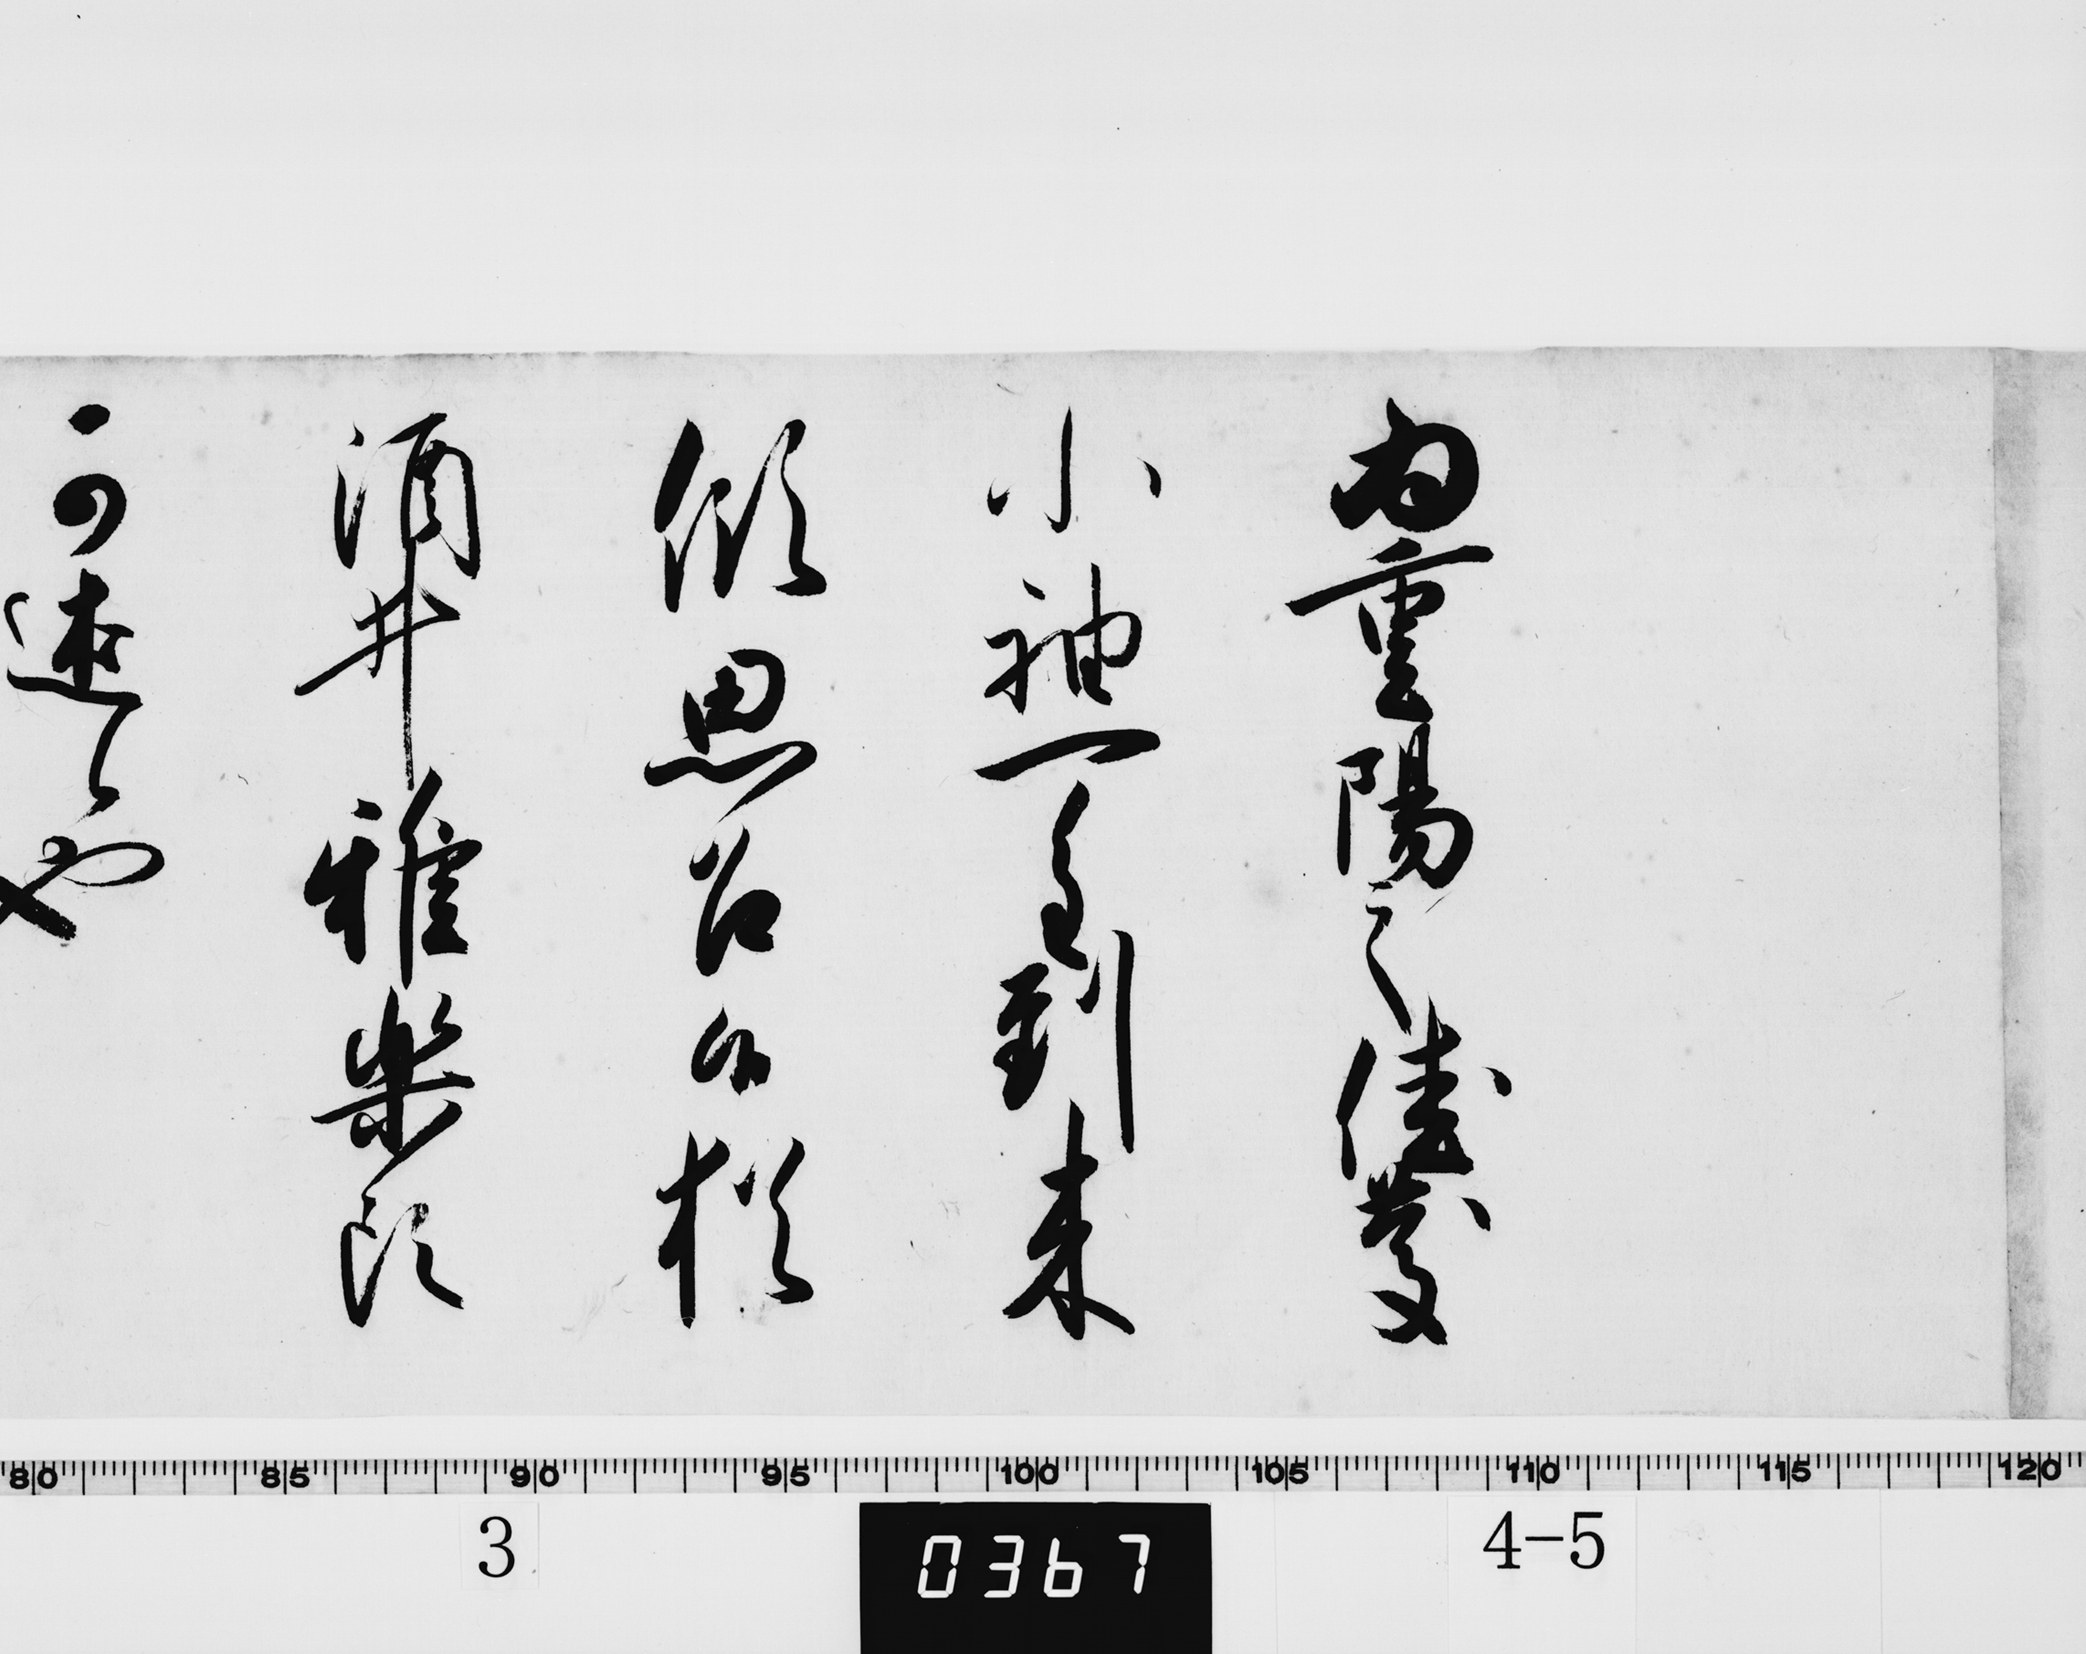 為重陽之儀慶
小袖一重到来
歓思召候猶
酒井雅楽頭
可述候也
80 85 90 95 100 105 110 115 120
3 0367 4-5